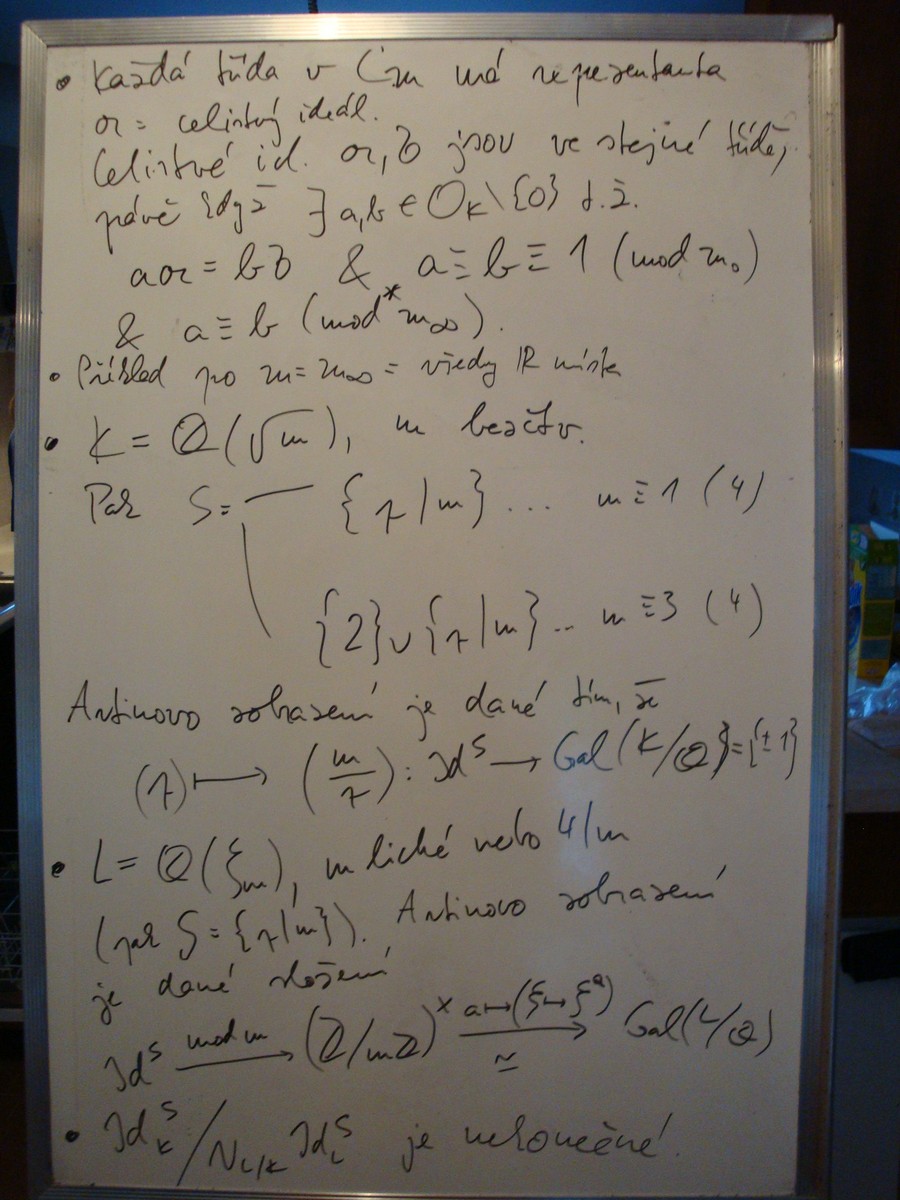 • Každá třída v C_m má reprezentanta
𝔞 = celistvý ideál.
Celistvé id. 𝔞, 𝔟 jsou ve stejné třídě,
právě když ∃ a,b ∈ O_K \ {0} t.ž.
a𝔞 = b𝔟 & a ≡ b ≡ 1 (mod m₀)
& a ≡ b (mod* m_∞).
• Příklad po m = m_∞ = všechny ℝ místa
• K = ℚ(√m), m bezčtv.
Pak S = {p | m} ... m ≡ 1 (4)
{2} ∪ {p | m} .. m ≡ 3 (4)
Artinovo zobrazení je dané tím, že
(p) ↦ (m/p) : Id^S → Gal(K/ℚ) = {±1}
• L = ℚ(ξ_m), m liché nebo 4/m
(pak S = {p | m}). Artinovo zobrazení
je dané složení
Id^S —mod m→ (ℤ/mℤ)^× —a ↦ (ξ ↦ ξ^a)→ ≃ Gal(L/ℚ)
• Id_K^S / N_{L/K} Id_L^S je nekonečné.